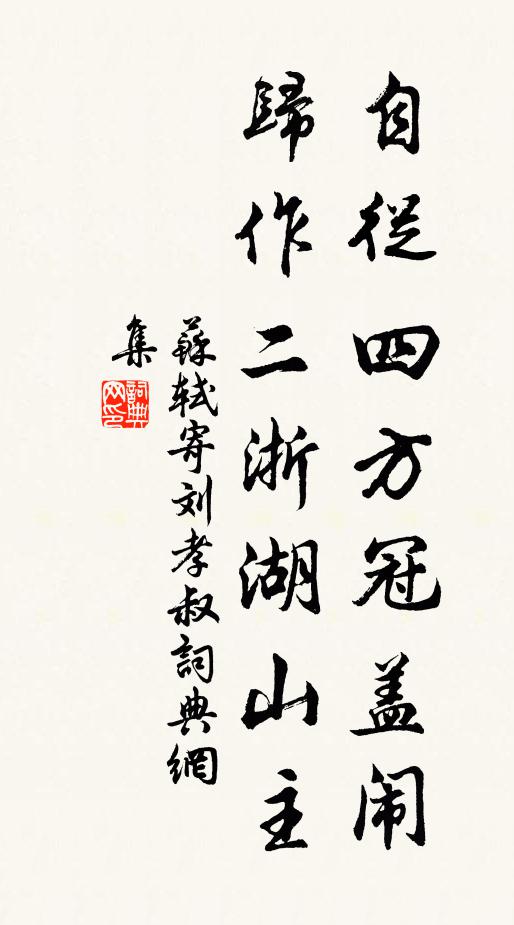 自從四方冠盖闹
歸作二浙湖山主
蘇轼寄刘孝叔詞典網
集
詞典網印